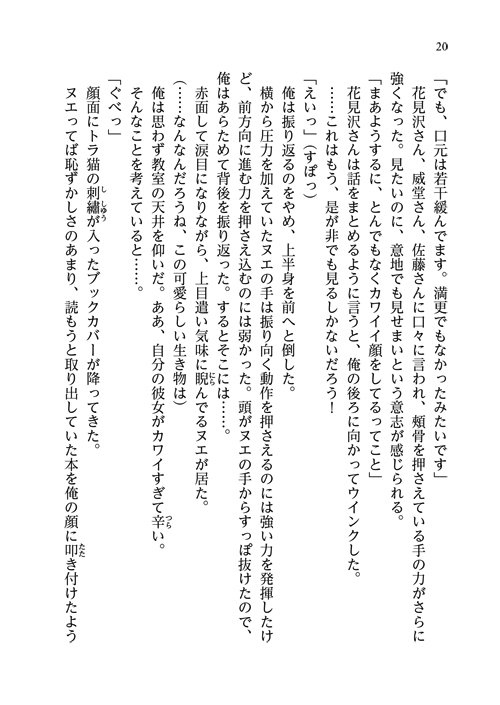 20
「でも、口元は若干緩んでます。満更でもなかったみたいです」
花見沢さん、威堂さん、佐藤さんに口々に言われ、頬骨を押さえている手の力がさらに
強くなった。見たいのに、意地でも見せまいという意志が感じられる。
「まあようするに、とんでもなくカワイイ顔をしてるってこと」
花見沢さんは話をまとめるように言うと、俺の後ろに向かってウインクした。
……これはもう、是が非でも見るしかないだろう！
「えいっ」（すぽっ）
俺は振り返るのをやめ、上半身を前へと倒した。
横から圧力を加えていたヌエの手は振り向く動作を押さえるのには強い力を発揮したけ
ど、前方向に進む力を押さえ込むのには弱かった。頭がヌエの手からすっぽ抜けたので、
俺はあらためて背後を振り返った。するとそこには……。
赤面して涙目になりながら、上目遣い気味に睨んでるヌエが居た。
（……なんなんだろうね、この可愛らしい生き物は）
俺は思わず教室の天井を仰いだ。ああ、自分の彼女がカワイすぎて辛い。
そんなことを考えていると……。
「ぐべっ」
顔面にトラ猫の刺繡が入ったブックカバーが降ってきた。
ヌエってば恥ずかしさのあまり、読もうと取り出していた本を俺の顔に叩き付けたよう